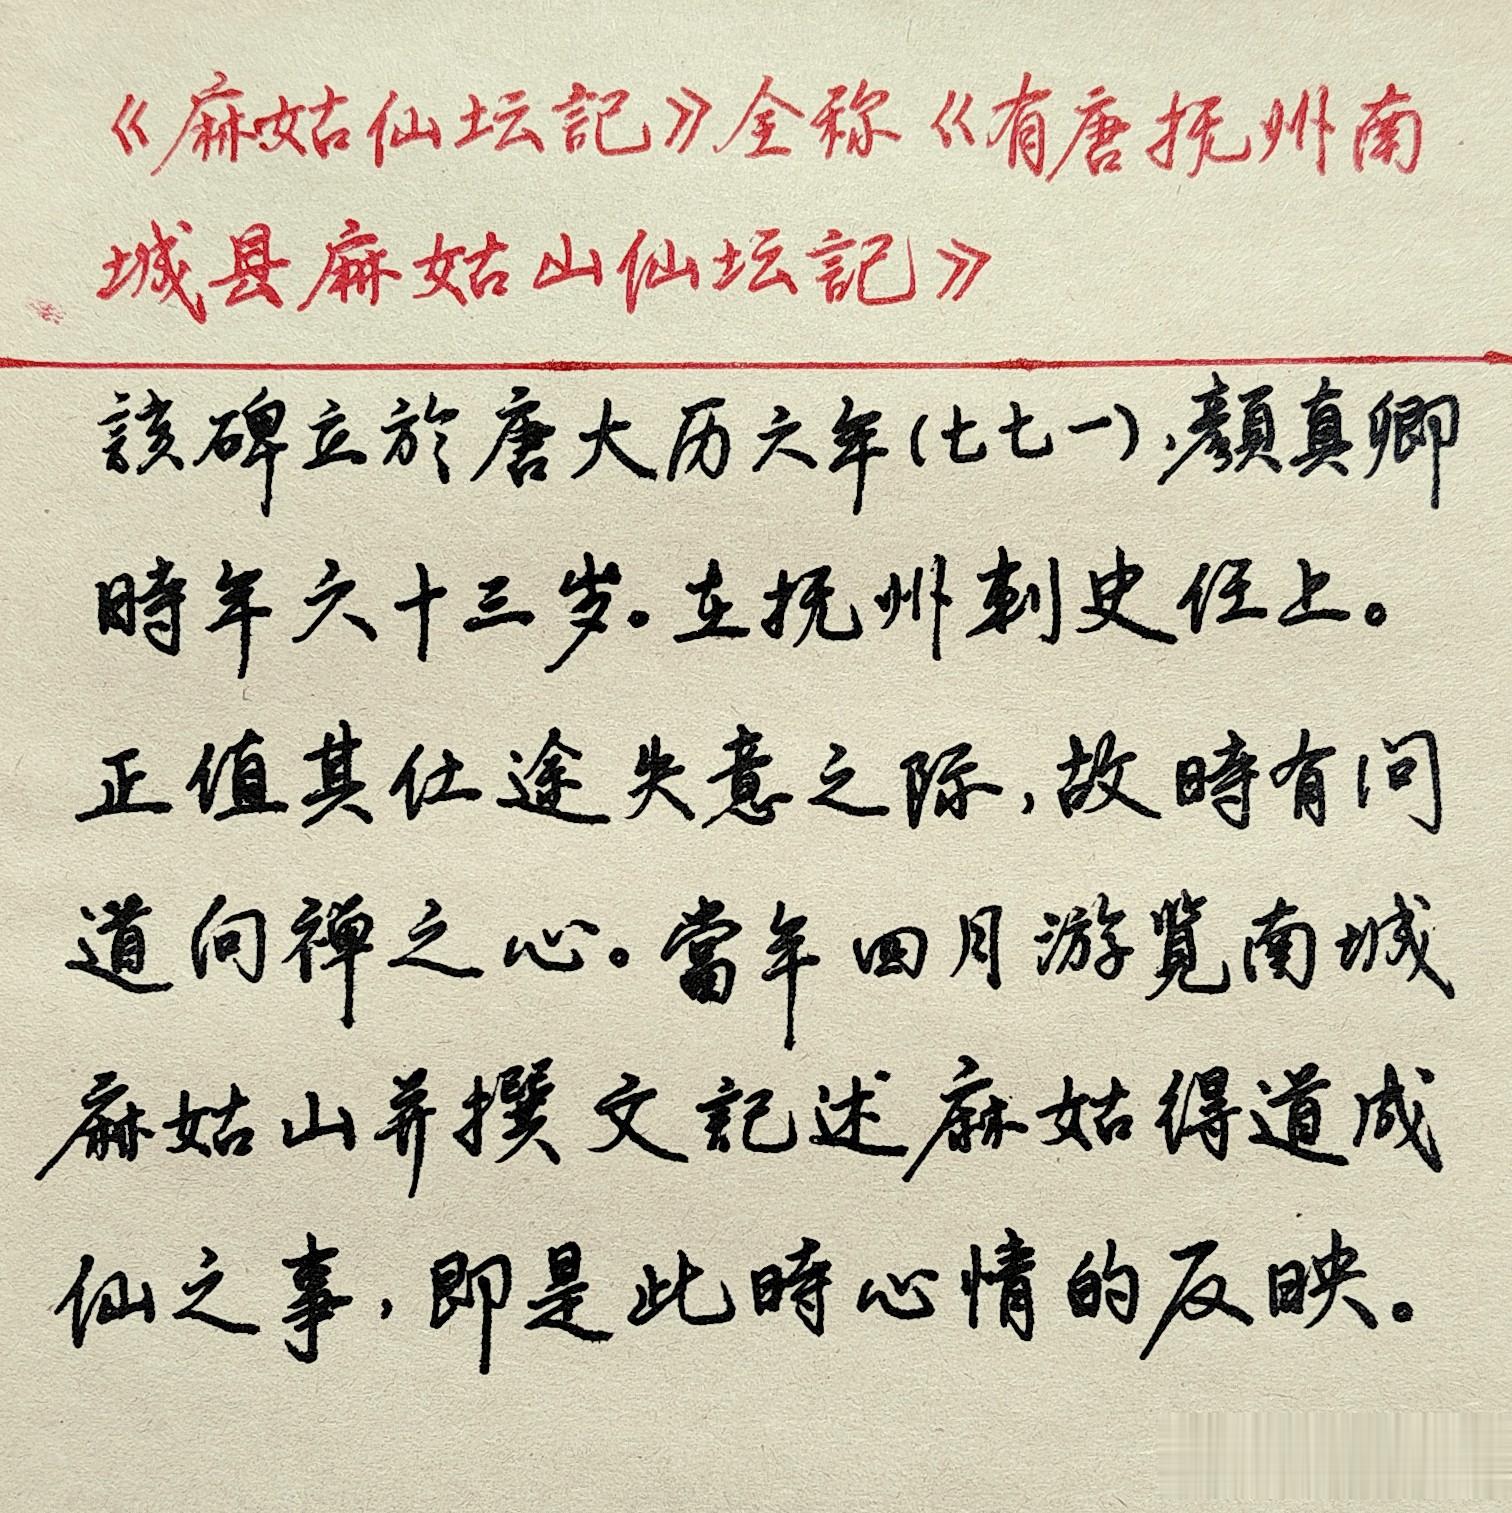 《麻姑仙坛記》全称《有唐抚州南
城县麻姑山仙坛記》
該碑立於唐大历六年(七七一),顏真卿
時年六十三岁。在抚州刺史任上。
正值其仕途失意之际,故時有问
道问禅之心。當年四月游览南城
麻姑山并撰文記述麻姑得道成
仙之事,即是此時心情的反映。